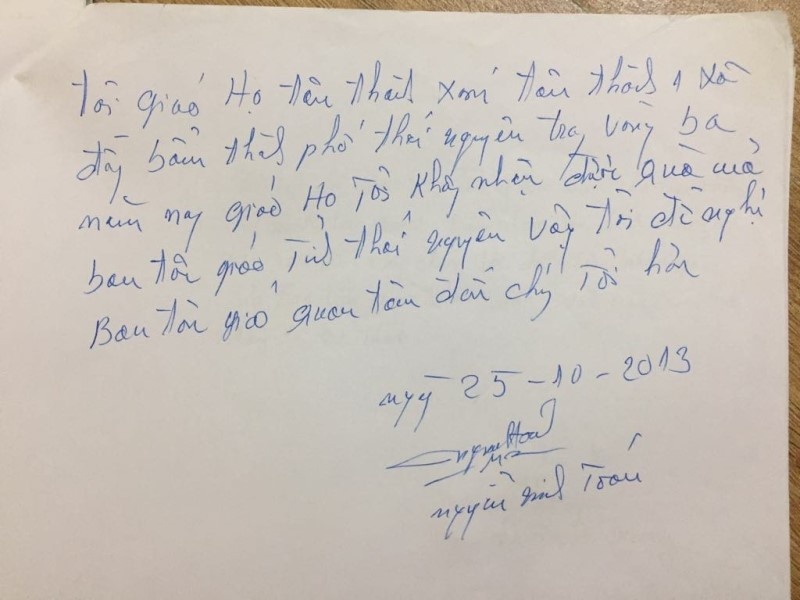 Tôi giáo Họ tân thành xóm tân thành 1 xã
đồng bẩm thành phố thái nguyên trong vòng ba
năm nay giáo Họ Tôi Không nhận được quà của
ban tôn giáo Tỉnh thái nguyên vậy tôi đề nghị
Ban tôn giáo quan tâm đến chúng Tôi hơn
ngày 25-10-2013
nguyễn Toán